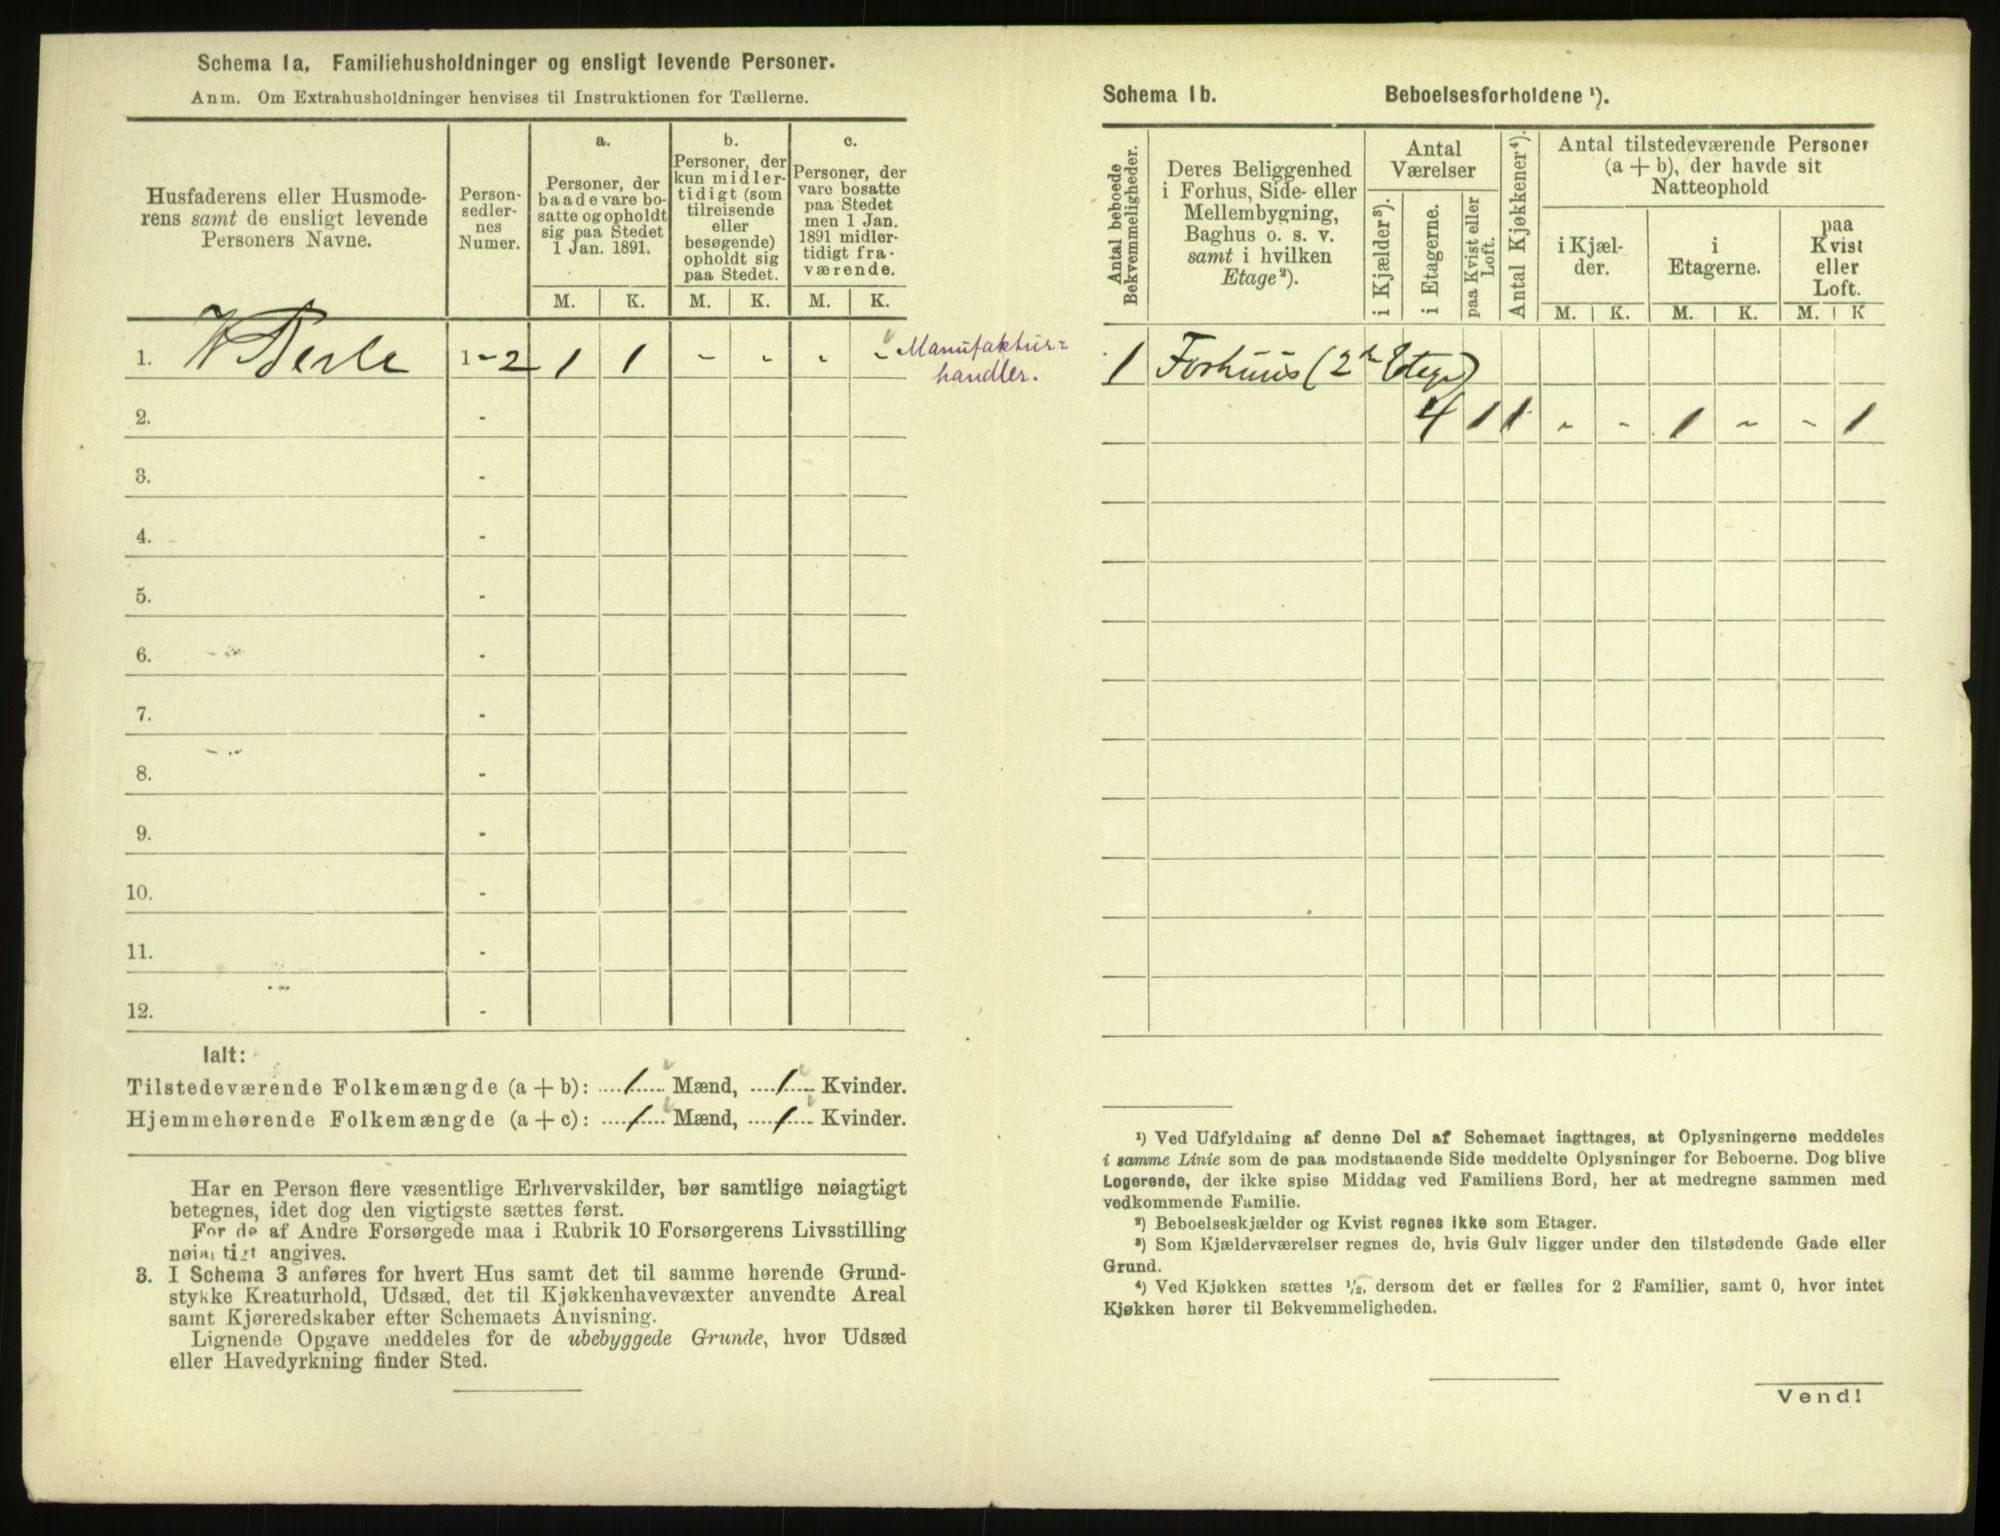 Schema 1a, Familiehusholdninger og ensligt levende Personer.
Anm. Om Extrahusholdninger henvises til Instruktionen for Tællerne.
Husfaderens eller Husmode-
rens samt de ensligt levende
Personers Navne.
Person-
sedler-
nes
Numer.
a.
Personer, der
baade vare bo-
satte og opholdt
sig paa Stedet
1 Jan. 1891.
b.
Personer, der
kun midler-
tidigt (som
tilreisende
eller
besøgende)
opholdt sig
paa Stedet.
c.
Personer, der
vare bosatte
paa Stedet
men 1 Jan.
1891 midler-
tidigt fra-
værende.
M. K. M. K. M. K.
1. 1-2 1 1 - - - - Manufaktur-
handler.
2. -
3. -
4. -
5. -
6. -
7. -
8. -
9. -
10. -
11. -
12. -
Ialt:
Tilstedeværende Folkemængde (a + b): 1 Mænd, 1 Kvinder.
Hjemmehørende Folkemængde (a + c): 1 Mænd, 1 Kvinder.
Har en Person flere væsentlige Erhvervskilder, bør samtlige nøiagtigt
betegnes, idet dog den vigtigste sættes først.
For de af Andre Forsørgede maa i Rubrik 10 Forsørgerens Livsstilling
nøiagtigt angives.
3. I Schema 3 anføres for hvert Hus samt det til samme hørende Grund-
stykke Kreaturhold, Udsæd, det til Kjøkkenhavevæxter anvendte Areal
samt Kjøreredskaber efter Schemaets Anvisning.
Lignende Opgave meddeles for de ubebyggede Grunde, hvor Udsæd
eller Havedyrkning finder Sted.
Schema 1b. Beboelsesforholdene ¹).
Antal beboede
Bekvemmeligheder.
Deres Beliggenhed
i Forhus, Side- eller
Mellembygning,
Baghus o. s. v.
samt i hvilken
Etage²).
Antal
Værelser
i Kjælder³).
i Etagerne.
paa Kvist eller
Loft.
Antal Kjøkkener⁴).
Antal tilstedeværende Personer
(a + b), der havde sit
Natteophold
i Kjæl-
der.
i
Etagerne.
paa
Kvist
eller
Loft.
M. K. M. K. M. K
1 Forhuus (2den Etage)
4 1 1 - - 1 - - 1
¹) Ved Udfyldning af denne Del af Schemaet iagttages, at Oplysningerne meddeles
i samme Linie som de paa modstaaende Side meddelte Oplysninger for Beboerne. Dog blive
Logerende, der ikke spise Middag ved Familiens Bord, her at medregne sammen med
vedkommende Familie.
²) Beboelseskjælder og Kvist regnes ikke som Etager.
³) Som Kjælderværelser regnes de, hvis Gulv ligger under den tilstødende Gade eller
Grund.
⁴) Ved Kjøkken sættes ½, dersom det er fælles for 2 Familier, samt 0, hvor intet
Kjøkken hører til Bekvemmeligheden.
Vend!